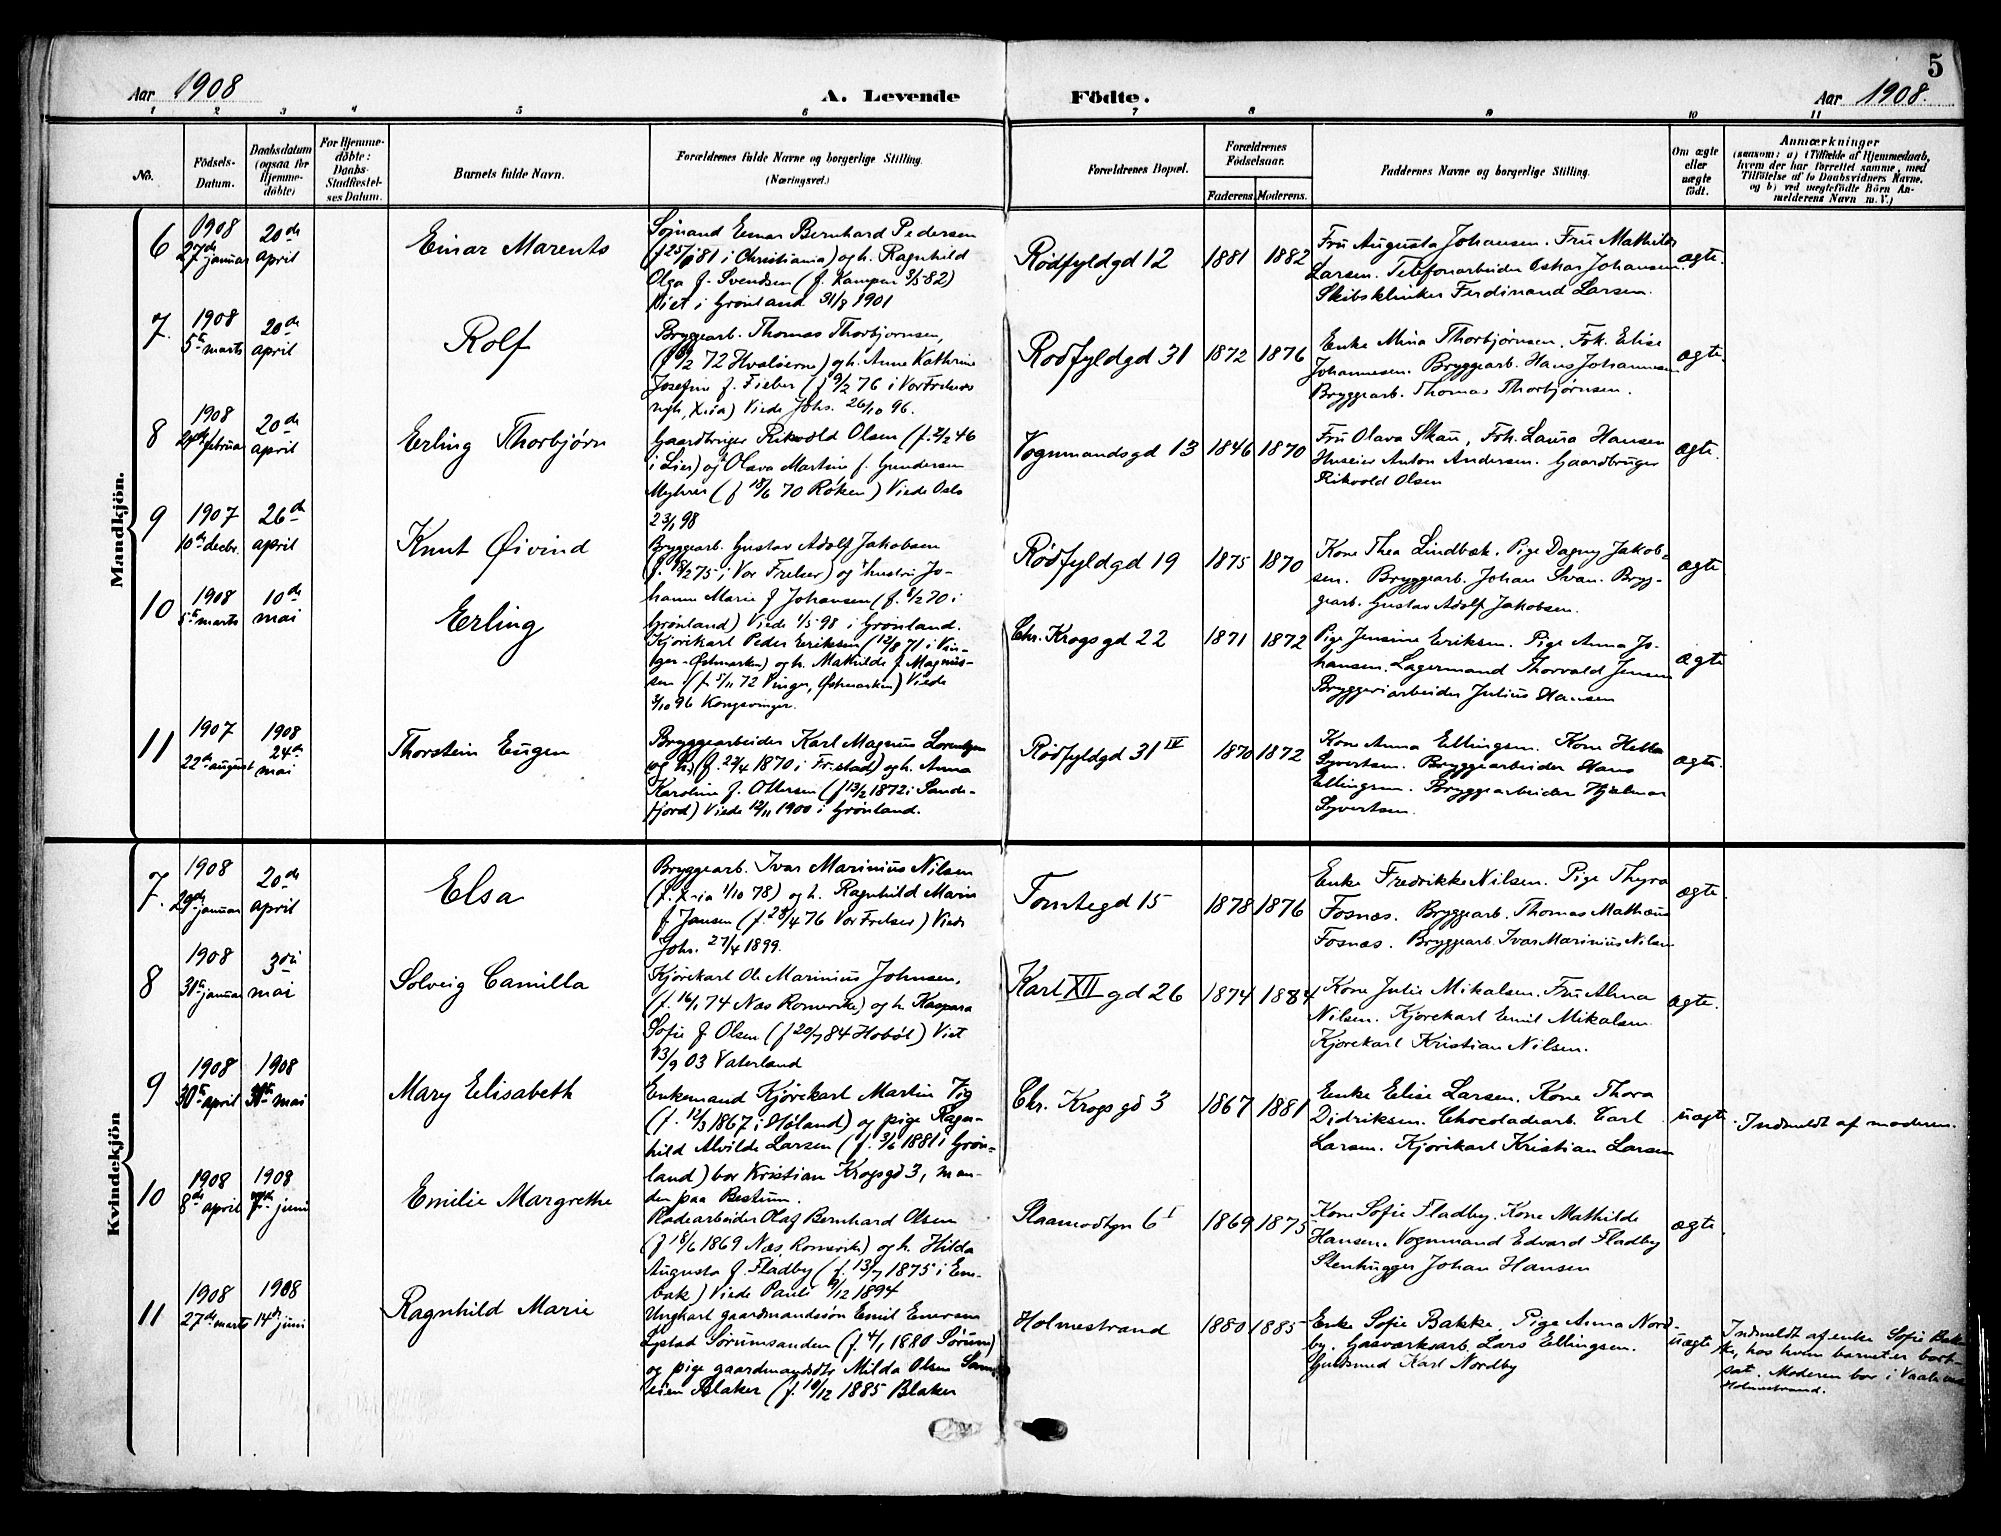 5
Aar 1908
A. Levende Födte.
Aar 1908.
1 2 3 4 5 6 7 8 9 10 11
No.
Födsels-Datum.
Daabsdatum (ogsaa for Hjemmedöbte)
For Hjemmedöbte: Daabs-Stadfæstelses Datum.
Barnets fulde Navn.
Forældrenes fulde Navne og borgerlige Stilling.
(Næringsvei.)
Forældrenes Bopæl.
Forældrenes Födselsaar.
Faderens. Moderens.
Faddernes Navne og borgerlige Stilling.
Om ægte eller uægte födt.
Anmærkninger
(saasom: a) i Tilfælde af Hjemmedaab,
hvem der har forrettet samme, med
Tilföielse af to Daabsvidners Navne,
og b) ved uægtefödte Börn Anmelderens Navn m. V.)
Mandkjön.
6
1908
27de januar
20de
april
Einar Marents
Sjømand Einar Bernhard Pedersen
(f 25/ 81 i Christiania) og h. Ragnhild
Olga f. Svendsen (f. Kampen 82)
Viet i Grønland 31/8 1901
Rødfyldgd 12
1881
1882
Fru Augusta Johansen. Fru Mathilde
Larsen. Telefonarbeider Oskar Johansen.
Skibsklinker Ferdinand Larsen.
ægte.
7.
1908
5te marts
20de
april
Rolf
Bryggearb. Thomas Thorbjørnsen,
72 Hvaløerne) og h. Anne Kathrine
Josefine f. Fieber (f 9/2 76 i Vor Frelsers
Viede Johs. 26/10 96.
Rødfyldgd 31
1872
1876
Enke Mina Thorbjørnsen. Frk. Elise
Johannesen. Bryggearb. Hans Johannesen
Bryggearb. Thomas Thorbjørnsen.
ægte
8
1908
februar
20de
april
Erling Thorbjørn
Gaardbruger Rikvold Olsen (f. 46
i Lier) og Olava Martine f. Gundersen
Myhrer (f 18/6 70 Røken) Viede Oslo
23/1 98
Vognmandsgd 13
1846
1870
Fru Olava Skau, Frk. Laura Hansen
Huseier Anton Andersen. Gaardbruger
Rikvold Olsen
ægte.
9
1907
10de decbr.
26de
april
Knut Øivind
Bryggearb. Gustav Adolf Jakobsen
(f. 75 i Vor Frelser) og hustru Johanne
Marie f Johansen (f. 70 i
Grønland) Viede 1/5 98 i Grønland.
Rødfyldgd 19
1875
1870
Kone Thea Lindbæk. Pige Dagny Jakobsen.
Bryggearb. Johan Svan. Bryggearb.
Gustav Adolf Jakobsen.
ægte
10
1908
5te marts
10de
mai
Erling
Kjørekarl Peder Eriksen (12/8 71 i Vinger-
Østmarken) og h. Mathilde f Magnussen
(f. 5/11 72 Vinger, Østmarken) Viede
3/10 96 Kongsvinger.
Chr. Krogs gd 22
1871
1872
Pige Jensine Eriksen. Pige Anna Johansen.
Lagermand Thorvald Jensen
Bryggeriarbeider Julius Hansen
ægte
11
1907
22de august
1908
24de
mai
Thorstein Eugen
Bryggearbeider Karl Magnus Lorentzen
(f. 1870 i Fr.stad) og h. Anna
Karoline f. Ottersen (f 13/2 1872 i Sandefjord)
Viede 12/11 1900 i Grønland.
Rødfyldgd 31 IV
1870
1872
Kone Anna Ellingsen. Kone Hetta
Syvertsen. Bryggearbeider Hans
Ellingsen. Bryggearbeider Hjalmar
Syvertsen.
ægte.
Kvindekjön
7.
1908
29de januar
20de
april
Elsa
Bryggearb. Ivar Marinius Nilsen
(f. X-ia 1/10 78) og h. Ragnhild Marie
f. Jansen (f. 28/4 76 Vor Frelser) Viede
Johs. 27/4 1899.
Tomtegd 15
1878
1876
Enke Fredrikke Nilsen. Pige Thyra
Fosnæs. Bryggearb. Thomas Mathæus
Fosnæs. Bryggearb. Ivar Marinius Nilsen
ægte.
8
1908
31te januar
3die
mai
Solveig Camilla
Kjørekarl Ole Marinius Johnsen,
(f. 16/1 74 Næs Romerike) og h. Kaspara
Sofie f Olsen (f 20/7 84 Hobøl) Viet
13/9 03 Vaterland
Karl XII gd 26
1874
1884
Kone Julie Mikalsen. Fru Alma
Nilsen. Kjørekarl Emil Mikalsen.
Kjørekarl Kristian Nilsen.
ægte.
9
1908
30te april
1908
31te mai
Mary Elisabeth
Enkemand Kjørekarl Martin Vig
(f. 1867 i Høland) og pige Ragnhild
Alvilde Larsen (f. 1881 i Grønland)
bor Kristian Krogsgd 3, manden
paa Bestum.
Chr. Krogs gd 3
1867
1881
Enke Elise Larsen. Kone Thora
Didriksen. Chocoladearb. Carl
Larsen. Kjørekarl Kristian Larsen
uægte
Indmeldt af moderen.
10
1908
8de april
1908
juni
Emilie Margrethe
Pladearbeider Olaf Bernhard Olsen
(f 18/6 1869 Næs, Romerike) og h. Hilda
Augusta f. Fladby (f. 13/7 1875 i Enebak)
Viede Pauli 9/12 1894
Slaamodtgn 6 I
1869
1875
Kone Sofie Fladby. Kone Mathilde
Hansen. Vognmand Edvard Fladby
Stenhugger Johan Hansen
ægte
11
1908
27de marts
1908
14de juni
Ragnhild Marie
Ungkarl gaardmandssøn Emil Enersen
Egstad Sørumsanden (f. 4/1 1880 Sørum)
og pige gaardmandsdtr Milda Olsen
Blaker (f. 10/12 1885 Blaker
Holmestrand
1880
1885
Enke Sofie Bakke, Pige Anna Nordby.
Gasværksarb. Lars Ellingsen.
Guldsmed Karl Nordby
uægte
Indmeldt af enke Sofie Bakke,
hos hvem barnet er bortsat.
Moderen bor i Vaale
Holmestrand.